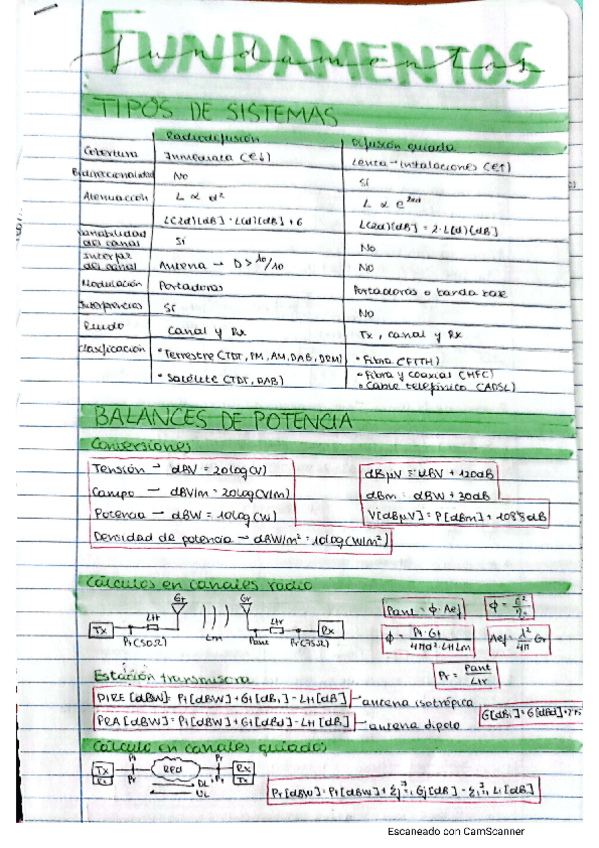 FUNDAMENTOS
fundamentos
TIPOS DE SISTEMAS
Radiodifusión Difusión guiada
Cobertura Inmediata (€↓) Lenta → instalaciones (€↑)
Bidireccionalidad No Sí
Atenuación L ∝ d² L ∝ e^2αd
L(2d)[dB] = L(d)[dB] + 6 L(2d)[dB] = 2·L(d)[dB]
Variabilidad del canal Sí No
Interfaz del canal Antena → D > λ0/10 No
Modulación Portadoras Portadoras o banda base
Interferencias Sí No
Ruido Canal y Rx Tx, canal y Rx
Clasificación • Terrestre (TDT, FM, AM, DAB, DRM) • Fibra (FTTH)
• Satélite (TDT, DAB) • Fibra y coaxial (HFC)
• Cable telefónico (ADSL)
BALANCES DE POTENCIA
Conversiones
Tensión → dBV = 20log(V) dBμV = dBV + 120dB
Campo → dBV/m = 20log(V/m) dBm = dBW + 30dB
Potencia → dBW = 10log(W) V[dBμV] = P[dBm] + 108'8dB
Densidad de potencia → dBW/m² = 10log(W/m²)
Cálculos en canales radio
Gt Gr Pant = ϕ·Aef ϕ = E²/η0
Tx Ltt Lm Ltr Rx
Pt(50Ω) Pant Pr(75Ω) ϕ = Pt·Gt/4πd²·Ltt·Lm Aef = λ²/4π Gr
Pr = Pant/Ltr
Estación transmisora
PIRE [dBW] = Pt[dBW] + Gt[dBi] - Ltt[dB] → antena isotrópica
PRA [dBW] = Pt[dBW] + Gt[dBd] - Ltt[dB] → antena dipolo G[dBi] = G[dBd] + 2'15
Cálculo en canales guiados
Tx Rx Pt Pr Red Pr Pt Rx Tx
DL
UL
Pr[dBW] = Pt[dBW] + Σj=1 Gj[dB] - Σi=1 Li[dB]
Escaneado con CamScanner